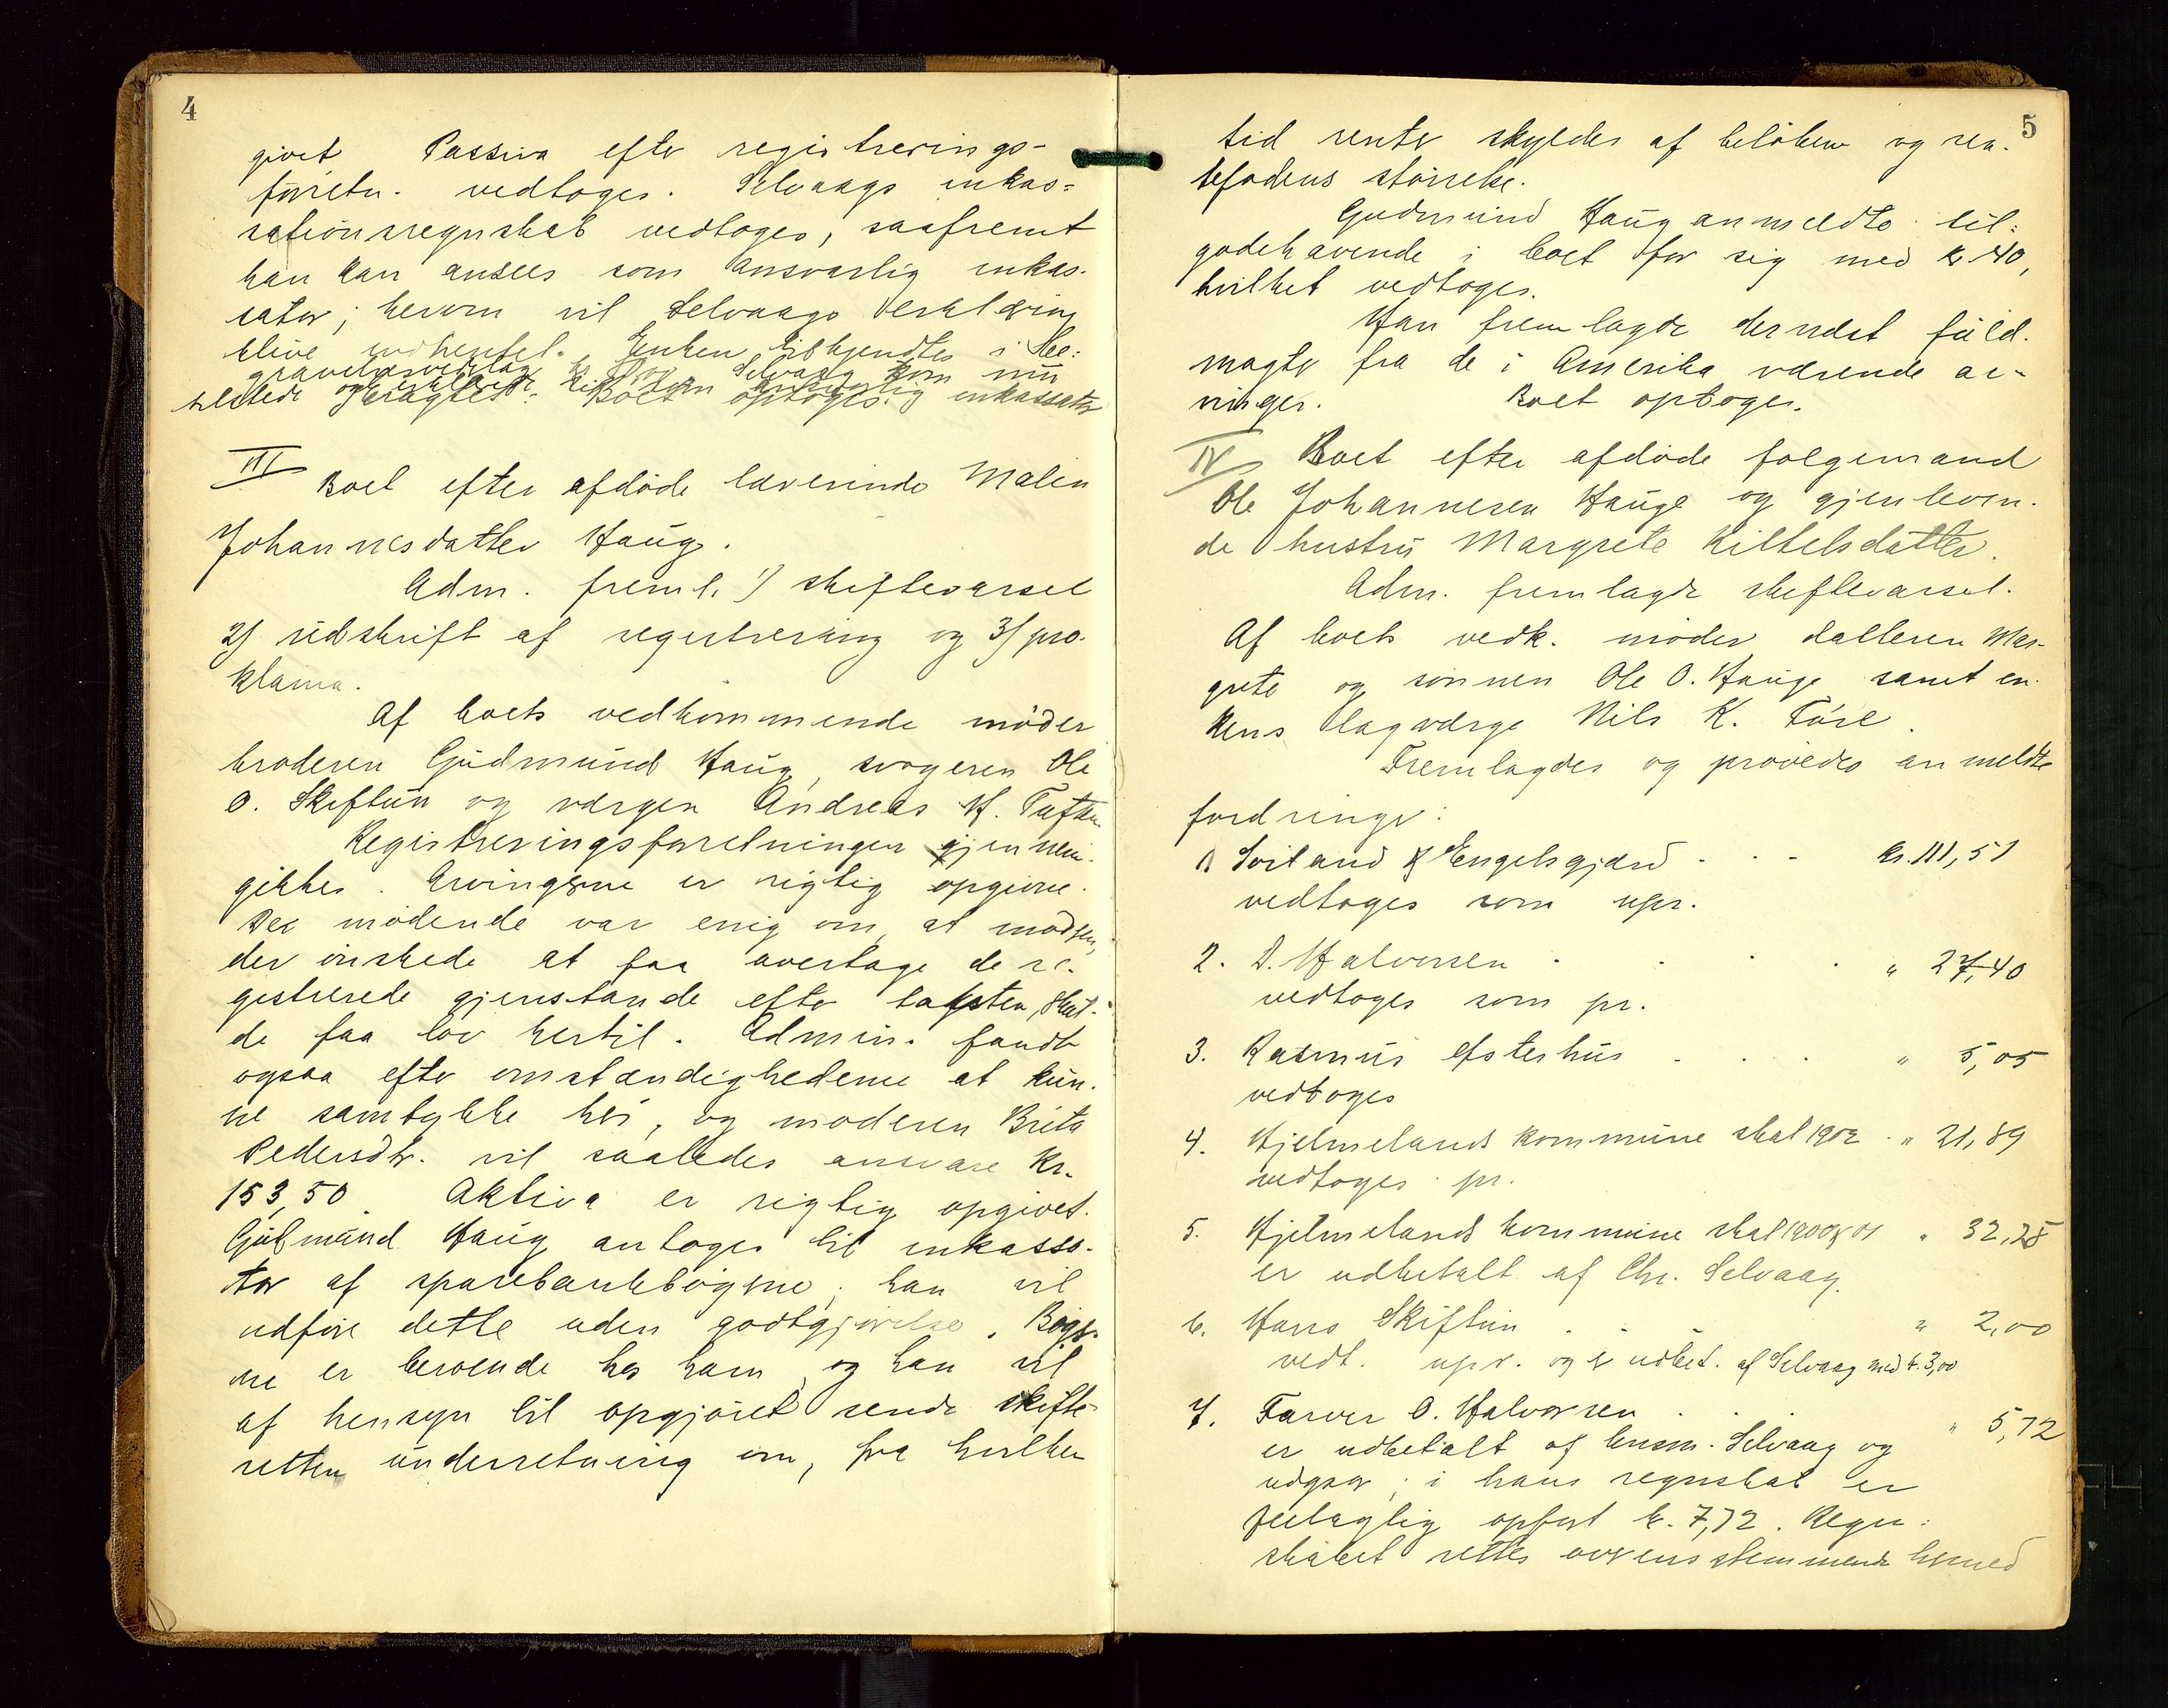 4
givet Passiva efter registrerings-
forretn. vedtoges. Selvaags inkas=
sationsregnskab vedtoges, saafremt
han kan ansees som ansvarlig inkas-
sator; herom vil Selvaags erklæring
blive indhentet. Enken tilkjendtes i be=
gravelsesvederlag Selvaag kom nu
tilstede og Boet optoges. inkassator
III Boet efter afdøde lærerinde Malen
Johannesdatter Haug.
Adm. freml. 1) skiftevarsel
2) udskrift af registrering og 3) pro-
klama.
Af boets vedkommende møder
broderen Gudmund Haug, svogeren Ole
O. Skiftun og værgen Andreas H. Tuften
Registreringsforretningen gjennem-
gikkes. Arvingerne er rigtig opgivne.
De mødende var enig om, at moderen,
der ønskede at faa overtage de re-
gistrerede gjenstande efter taksten, skul-
de faa lov hertil. Admin. fandt
ogsaa efter omstændighederne at kun-
ne samtykke her, og moderen Brita
Pedersdtr. vil saaledes ansvare kr.
153,50. Aktiva er rigtig opgivet.
Gudmund Haug antoges til inkassa-
tor af sparebankbøgerne; han vil
udføre dette uden godtgjørelse. Bøger-
ne er beroende hos ham, og han vil
af hensyn til opgjøret sende skifte-
retten underretning om, fra hvilken
5
tid renter skyldes af beløbene og ren-
tefodens størrelse.
Gudmund Haug anmeldte til=
godehavende i boet for sig med kr 40,
hvilket vedtoges.
Han fremlagde dernæst fuld-
magter fra de i Amerika værende ar-
vinger. Boet optoges.
IV Boet efter afdøde følgemand
Ole Johannesen Hauge og gjenleven-
de hustru Margrete Kittelsdatter.
Adm. fremlagde skiftevarsel.
Af boets vedk. møder datteren Mar-
grete og sønnen Ole O. Hauge samt en-
kens lagværge Nils K. Føse.
Fremlagdes og prøvedes anmeldte
fordringer:
1 Soiland & Engelsgjærd - - - kr. 111,51
vedtoges som upr.
2. D. Halvorsen . . . . " 27,40
vedtoges som pr.
3. Rasmus Østerhus . . . " 5,05
vedtoges
4. Hjelmelands kommune skat 1902 . " 21,89
vedtoges pr.
5. Hjelmelands kommune skat 1900 & 01 " 32,28
er udbetalt af Chr. Selvaag.
6. Hans Skiftun . . . " 2,00
vedt. upr. og er udbet. af Selvaag med kr. 3,00
7. Farver O. Halvorsen . . . " 5,72
er udbetalt af lensm. Selvaag og
udgaar; i hans regnskab er
feilagtig opført kr. 7,72. Regn=
skabet rettes overensstemmende hermed